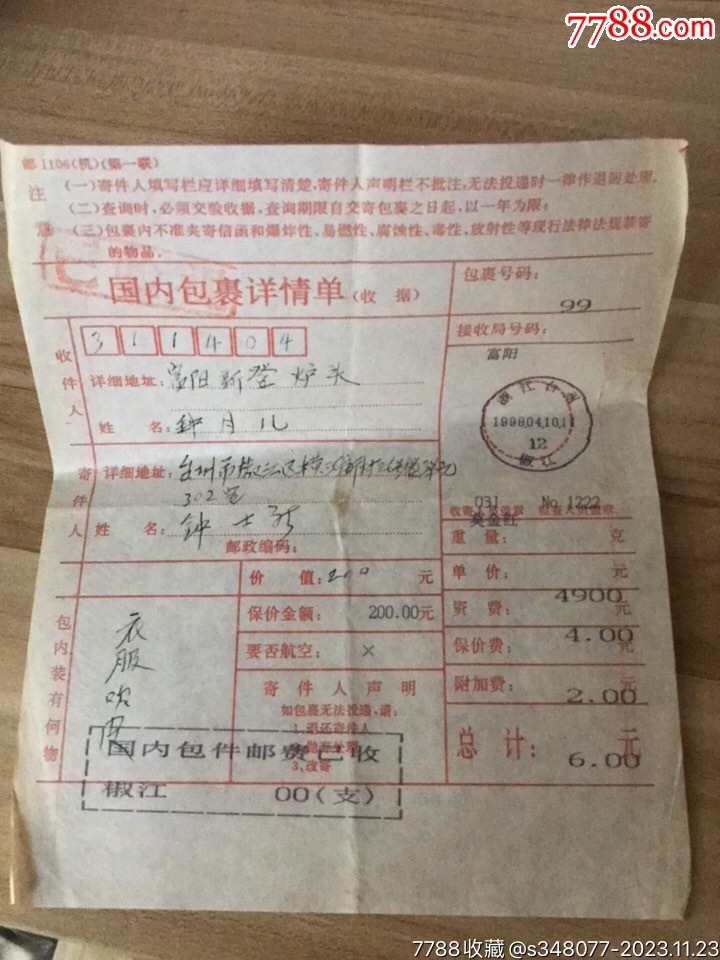 7788.com
邮1106(机)(第一联)
注意
(一)寄件人填写栏应详细填写清楚,寄件人声明栏不批注,无法投递时一律作退回处理.
(二)查询时,必须交验收据,查询期限自交寄包裹之日起,以一年为限;
(三)包裹内不准夹寄信函和爆炸性、易燃性、腐蚀性、毒性、放射性等现行法律法规禁寄
的物品.
国内包裹详情单(收 据)
包裹号码:
99
收件人
311404
接收局号码:
富阳
详细地址:富阳新登炉头
姓 名:钟月儿
浙江台州
1998.04.10.11
12
椒江
寄件人
详细地址:台州市椒江区
302室
姓 名:钟士
邮政编码:
031 No.1222
重量: 克
价 值:200 元
单价: 元
4900
保价金额: 200.00元
资费: 元
4.00
要否航空: ×
保价费: 元
包内装有何物
衣服
寄件人声明
如包裹无法投递,请:
1.退还寄件人
3.改寄
附加费: 元
2.00
总计: 元
6.00
国内包件邮费已收
椒江 00(支)
7788收藏@s348077-2023.11.23